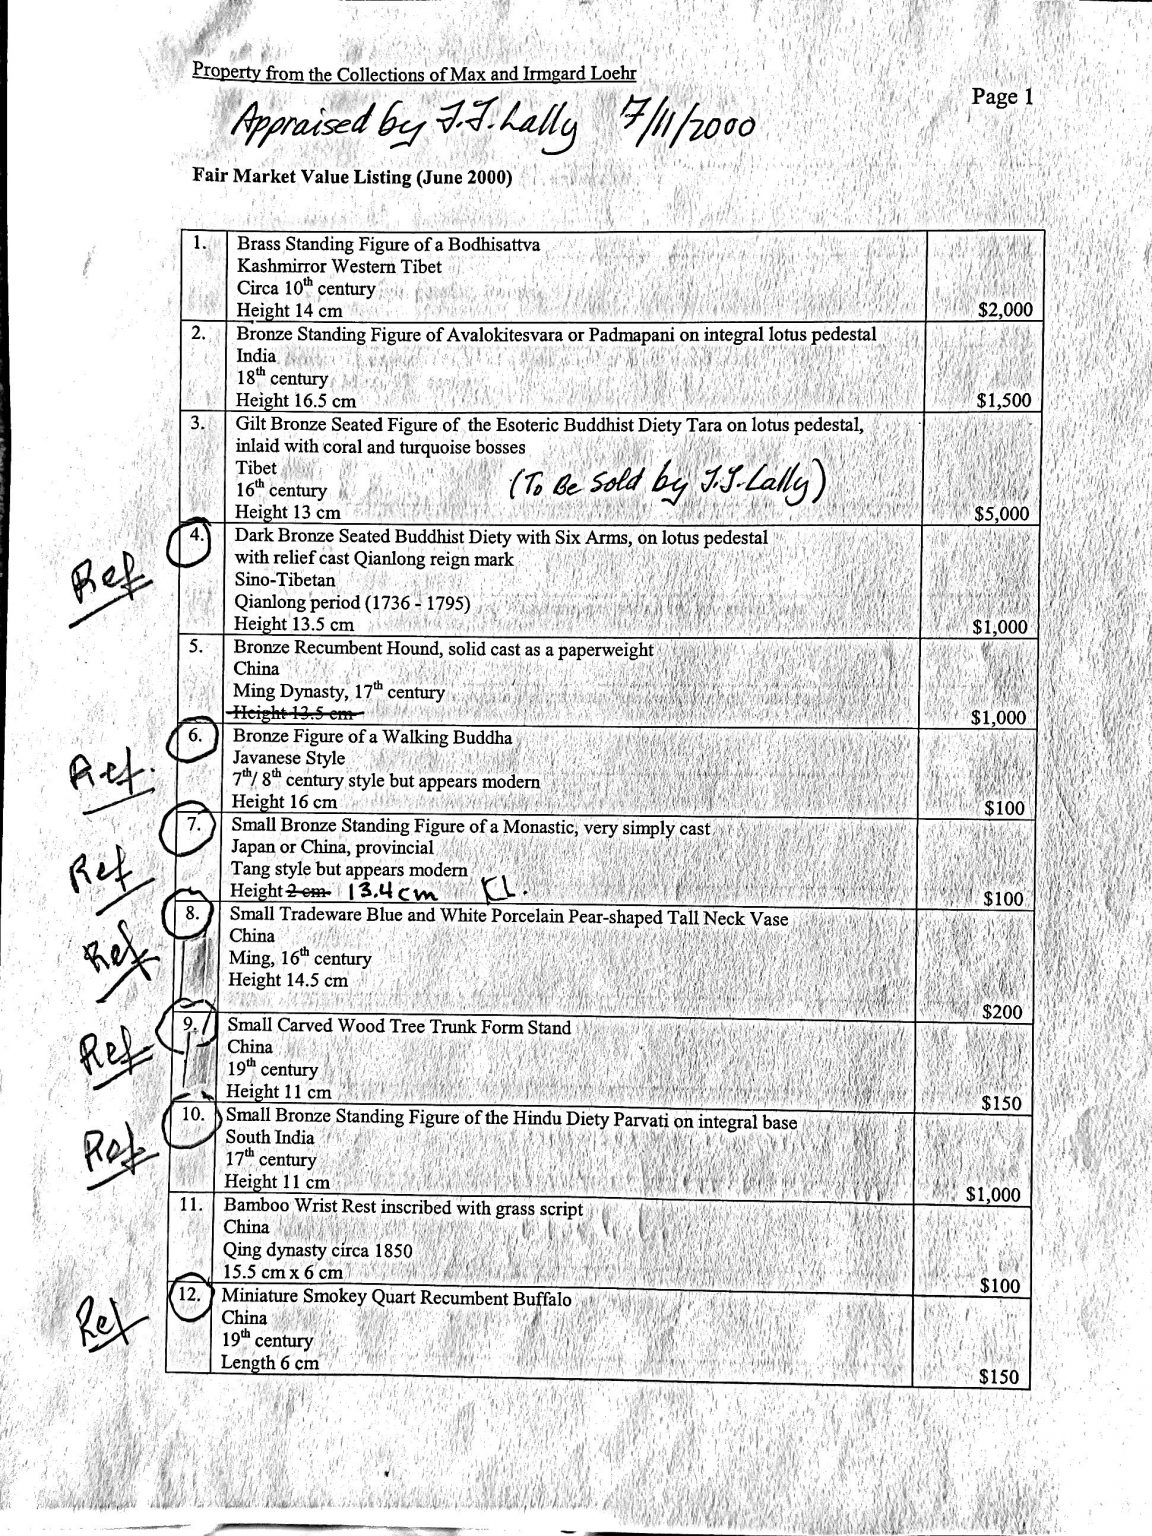 Property from the Collections of Max and Irmgard Loehr
Page 1
Appraised by J.J. Lally 7/11/2000
Fair Market Value Listing (June 2000)
1. Brass Standing Figure of a Bodhisattva
Kashmirror Western Tibet
Circa 10th century
Height 14 cm $2,000
2. Bronze Standing Figure of Avalokitesvara or Padmapani on integral lotus pedestal
India
18th century
Height 16.5 cm $1,500
3. Gilt Bronze Seated Figure of the Esoteric Buddhist Diety Tara on lotus pedestal,
inlaid with coral and turquoise bosses
Tibet
16th century (To Be Sold by J.J. Lally)
Height 13 cm $5,000
Ref 4. Dark Bronze Seated Buddhist Diety with Six Arms, on lotus pedestal
with relief cast Qianlong reign mark
Sino-Tibetan
Qianlong period (1736 - 1795)
Height 13.5 cm $1,000
5. Bronze Recumbent Hound, solid cast as a paperweight
China
Ming Dynasty, 17th century
Height 13.5 cm $1,000
Ref. 6. Bronze Figure of a Walking Buddha
Javanese Style
7th/ 8th century style but appears modern
Height 16 cm $100
Ref 7. Small Bronze Standing Figure of a Monastic, very simply cast
Japan or China, provincial
Tang style but appears modern
Height 2 cm 13.4 cm KL. $100
Ref 8. Small Tradeware Blue and White Porcelain Pear-shaped Tall Neck Vase
China
Ming, 16th century
Height 14.5 cm
$200
Ref 9. Small Carved Wood Tree Trunk Form Stand
China
19th century
Height 11 cm $150
Ref 10. Small Bronze Standing Figure of the Hindu Diety Parvati on integral base
South India
17th century
Height 11 cm $1,000
11. Bamboo Wrist Rest inscribed with grass script
China
Qing dynasty circa 1850
15.5 cm x 6 cm $100
Ref 12. Miniature Smokey Quart Recumbent Buffalo
China
19th century
Length 6 cm $150